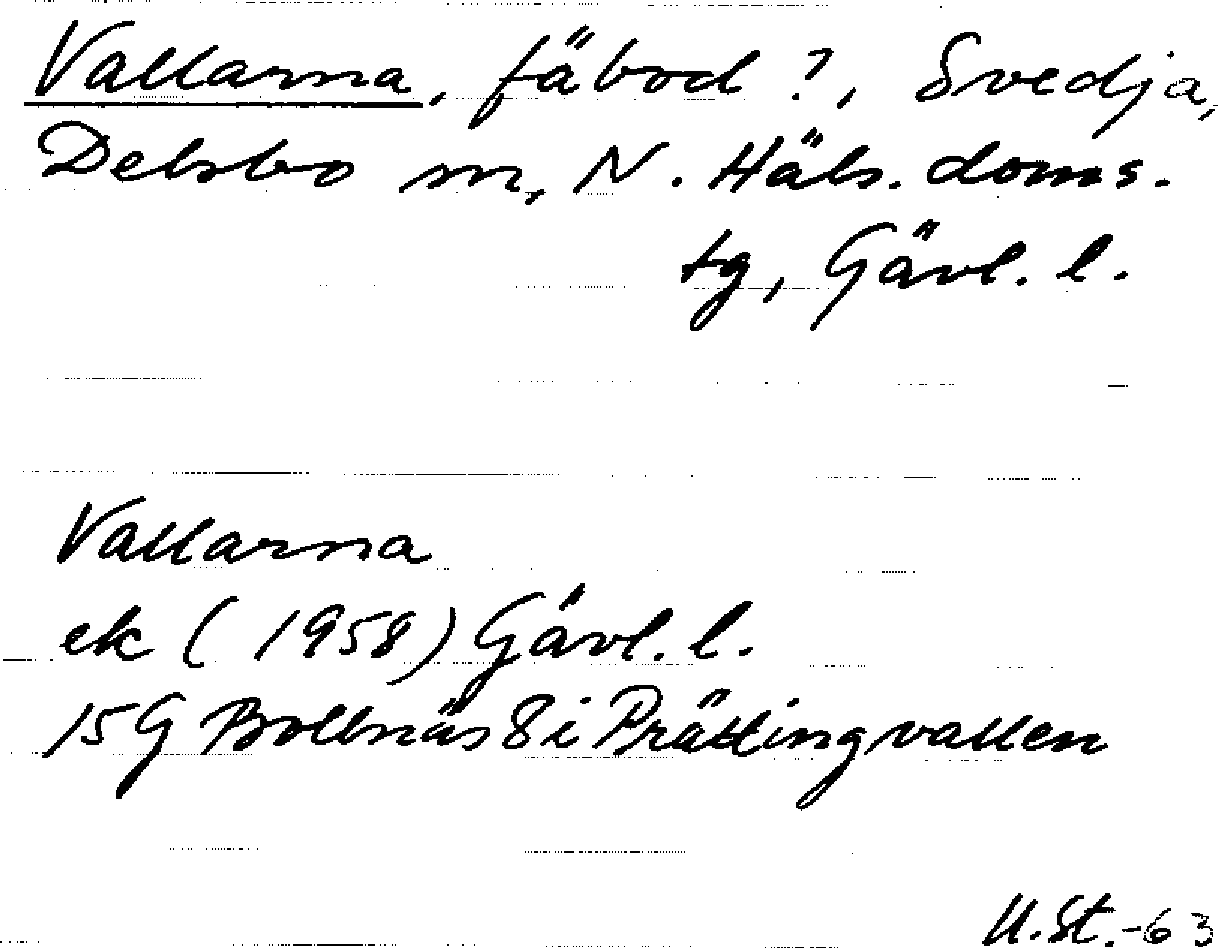 Vallarna, fäbod ?, Svedja,
Delsbo sn, N. Häls. doms.
tg, Gävl. l.
Vallarna
ek (1958) Gävl. l.
15G Bollnäs 8i Prästingvallen
U.St.-63